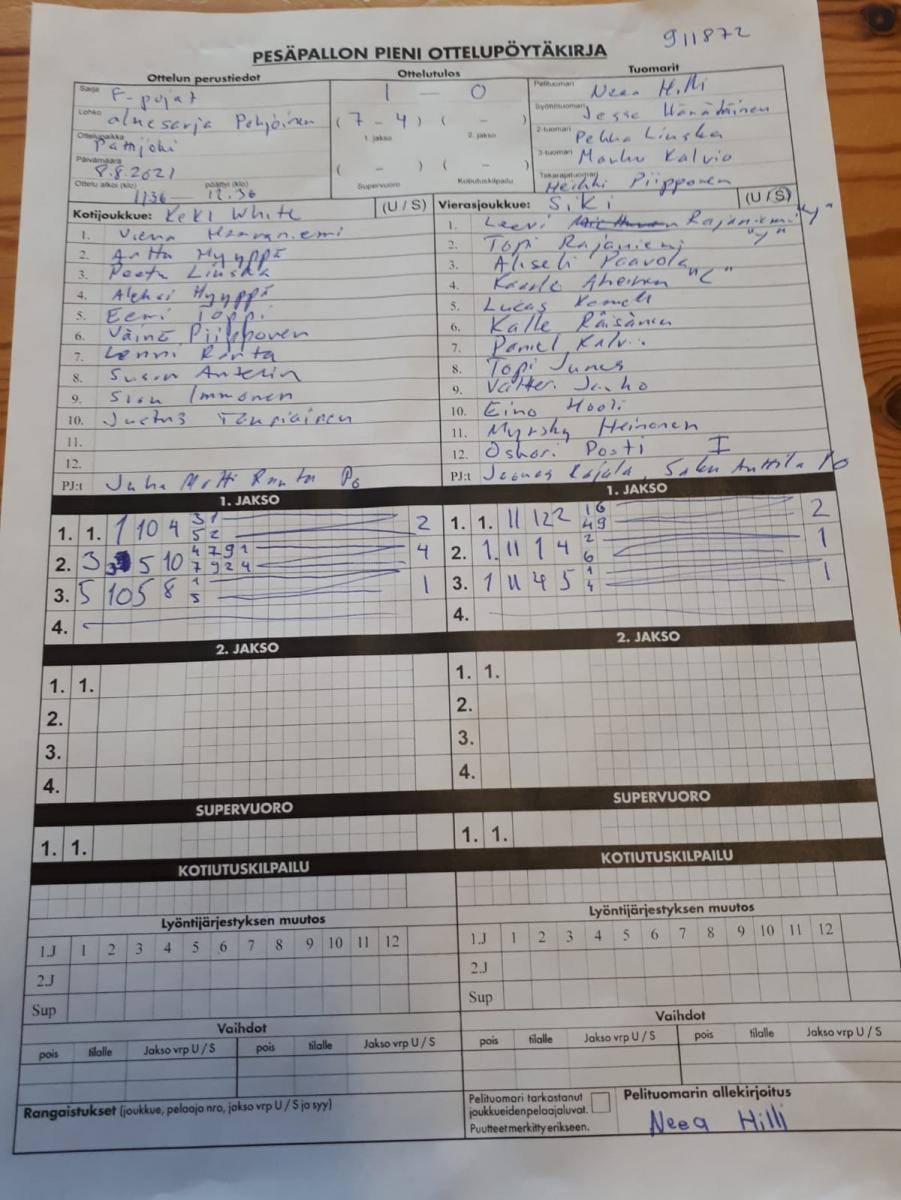 911872
PESÄPALLON PIENI OTTELUPÖYTÄKIRJA
Ottelun perustiedot
Sarja F-pojat
Lohko aluesarja Pohjoinen
Ottelupaikka Pattijoki
Päivämäärä 8.8.2021
Ottelu alkoi (klo) päättyi (klo)
1136 — 12.36
Ottelutulos
1 — 0
( 7 - 4 ) ( - )
1. jakso 2. jakso
( - ) ( - )
Supervuoro Kotiutuskilpailu
Tuomarit
Pelituomari Neea Hilli
Syöttötuomari Jesse Hämäläinen
2-tuomari Pekka Linska
3-tuomari Marku Kalvio
Takarajatuomari Heikki Piipponen
Kotijoukkue: KeKi White (U / S)
1. Viena Haaraniemi
2. Arttu Hyyppä
3. Peetu Linska
4. Aleksi Hyyppä
5. Eemi Toppi
6. Väinö Piipponen
7. Lenni Ranta
8. Anterin
9. Immonen
10. Justus
11.
12.
PJ:t Juha Matti Ranta Po
Vierasjoukkue: SiKi (U / S)
1. Leevi Rajaniemi "y"
2. Topi Rajaniemi "y"
3. Akseli Paavola
4. Kaarlo Aheinen "C"
5. Lucas
6. Kalle Räisänen
7. Daniel
8. Topi Junes
9. Valtteri Jauho
10. Eino Hooli
11. Myrsky Heinonen
12. Oskari Posti I
PJ:t Joonas Rajala, Saku Anttila Po
1. JAKSO
1. 1. 1 10 4 31 52 2
2. 3 3 5 10 4791 7924 4
3. 5 10 5 8 1 5 1
4.
1. JAKSO
1. 1. 11 12 2 16 49 2
2. 1. 11 1 4 2 6 1
3. 1 11 4 5 1 4 1
4.
2. JAKSO
1. 1.
2.
3.
4.
2. JAKSO
1. 1.
2.
3.
4.
SUPERVUORO
1. 1.
SUPERVUORO
1. 1.
KOTIUTUSKILPAILU
KOTIUTUSKILPAILU
Lyöntijärjestyksen muutos
1.J 1 2 3 4 5 6 7 8 9 10 11 12
2.J
Sup
Lyöntijärjestyksen muutos
1.J 1 2 3 4 5 6 7 8 9 10 11 12
2.J
Sup
Vaihdot
pois tilalle Jakso vrp U / S pois tilalle Jakso vrp U / S
Vaihdot
pois tilalle Jakso vrp U / S pois tilalle Jakso vrp U / S
Rangaistukset (joukkue, pelaaja nro, jakso vrp U / S ja syy)
Pelituomari tarkastanut
joukkueiden pelaajaluvat.
Puutteet merkitty erikseen.
Pelituomarin allekirjoitus
Neea Hilli